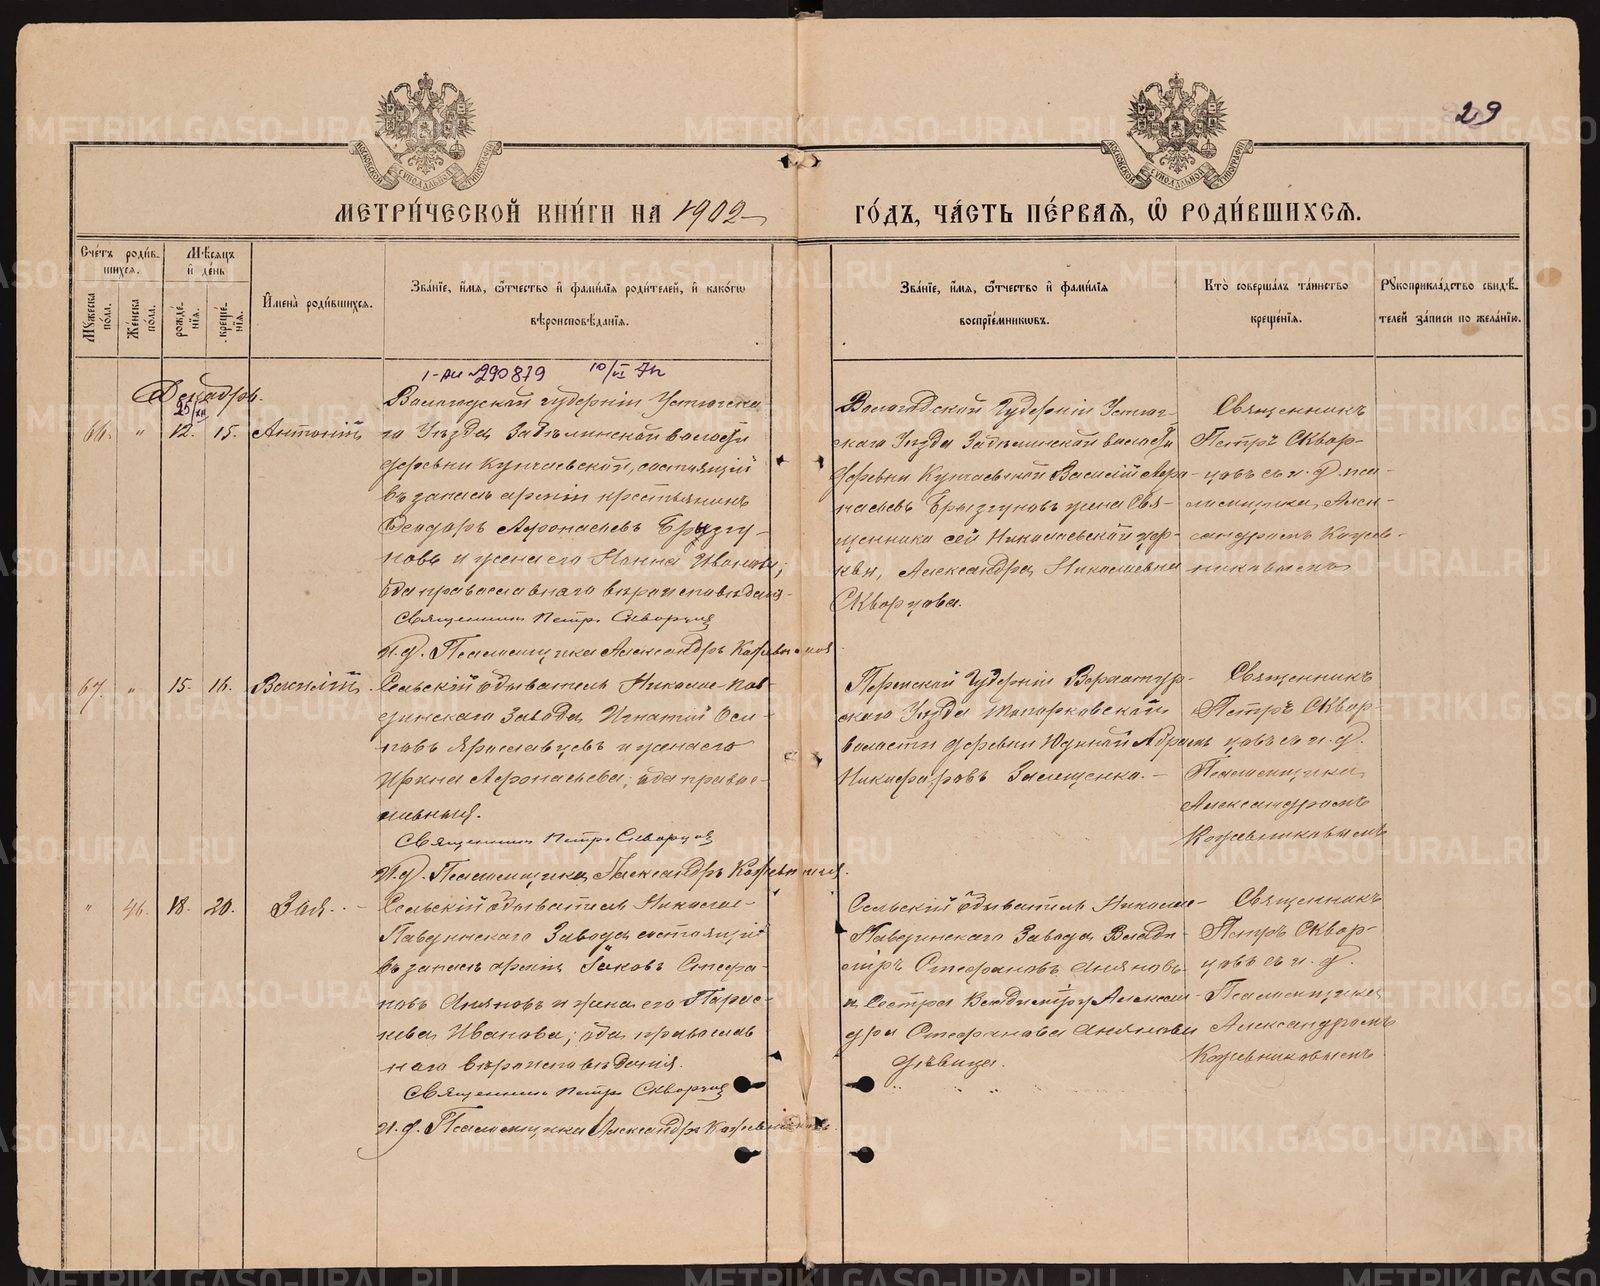 29
МОСКОВСКОЙ СѴНОДАЛЬНОЙ ТИПОГРАФІИ
МОСКОВСКОЙ СѴНОДАЛЬНОЙ ТИПОГРАФІИ
МЕТРИ́ЧЕСКОЙ КНИ́ГИ НА 1902
ГО́ДЪ, ЧА́СТЬ ПЕ́РВАѦ, Ѽ РОДИ́ВШИХСѦ.
Сче́тъ роди́вшихсѧ.
Мꙋжеска по́ла.
Же́нска по́ла.
Мѣ́сѧцъ и҆ де́нь
рожде́нїѧ.
креще́нїѧ.
И҆мена̀ роди́вшихсѧ.
Зва́нїе, и҆́мѧ, ѻ҆́тчество и҆ фами́лїѧ роди́телей, и҆ како́гѡ
вѣроисповѣ́данїѧ.
Зва́нїе, и҆́мѧ, ѻ҆́тчество и҆ фами́лїѧ
воспрїе́мникѡвъ.
Кто̀ соверша́лъ та́инство
креще́нїѧ.
Рꙋкоприкла́дство свидѣ́-
телей за́писи по жела́нїю.
290879 10/VI
Декабрь.
25/XII
66. " 12. 15. Антоній
Вологодской губерніи Устюгска-
го Уѣзда, волости
деревни состоящій
въ запасѣ арміи крестьянинъ
Ѳеодоръ Аѳонасьевъ Брызгу-
новъ и жена его Иванова;
оба православнаго вѣроисповѣданія
Священникъ Петръ Скворцовъ
И. д. Псаломщика Александръ Кожевниковъ
Вологодской Губерніи Устюг-
скаго Уѣзда волости
деревни Василій Аѳа-
насьевъ Брызгуновъ и жена Свя-
щенника сей Николаевской цер-
кви, Александра Николаевна
Скворцова.
Священникъ
Петръ Сквор-
цовъ съ и. д. пса-
ломщика, Алек-
сандромъ Кожев-
никовымъ
67. " 15. 16. Василій
Сельскій обыватель Николае-Пав-
динскаго Завода, Игнатій Оси-
повъ Ярославцевъ и жена его
Ирина Аѳонасьева; оба правос-
лавныя.
Священникъ Петръ Скворцовъ
И. д. Псаломщика, Александръ Кожевниковъ
Пермской Губерніи Верхотур-
скаго Уѣзда
волости деревни
Никифоровъ
Священникъ
Петръ Сквор-
цовъ съ и. д.
Псаломщика
Александромъ
Кожевниковымъ
" 46. 18. 20. Зоя.
Сельскій обыватель Николае-
Павдинскаго Завода, состоящій
въ запасѣ арміи Іаковъ Стефа-
новъ Аняновъ и жена его Парас-
кева Иванова; оба православ
наго вѣроисповѣданія.
Священникъ Петръ Скворцовъ
И. д. Псаломщика Александръ Кожевниковъ
Сельскій обыватель Николае-
Павдинскаго Завода Влади-
міръ Стефановъ Аняновъ
и Сестра Владиміру Алексан-
дра Стефанова Анянова
дѣвица.
Священникъ
Петръ Сквор-
цовъ съ и. д.
Псаломщика
Александромъ
Кожевниковымъ
METRIKI.GASO-URAL.RU